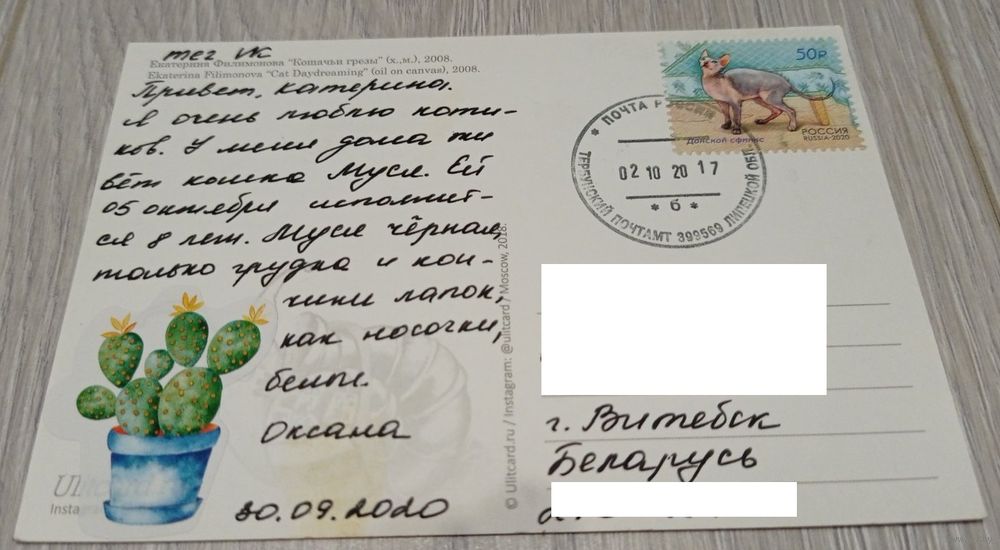 тег VK
Екатерина Филимонова "Кошачьи грезы" (х.,м.), 2008.
Ekaterina Filimonova "Cat Daydreaming" (oil on canvas), 2008.
Привет, Катерина.
Я очень люблю коти-
ков. У меня дома жи
вёт кошка Муся. Ей
05 октября исполнит-
ся 8 лет. Муся чёрная,
только грудка и кон-
чики лапок,
как носочки,
белые.
Оксана
30.09.2020
Ulitcard
Insta
© Ulitcard.ru / Instagram: @ulitcard / Moscow, 2018.
50₽
Донской сфинкс
РОССИЯ
RUSSIA•2020
* ПОЧТА РОССИИ
02 10 20 17
* б *
ТЕРБУНСКИЙ ПОЧТАМТ 399569 ЛИПЕЦКОЙ ОБЛ
г. Витебск
Беларусь